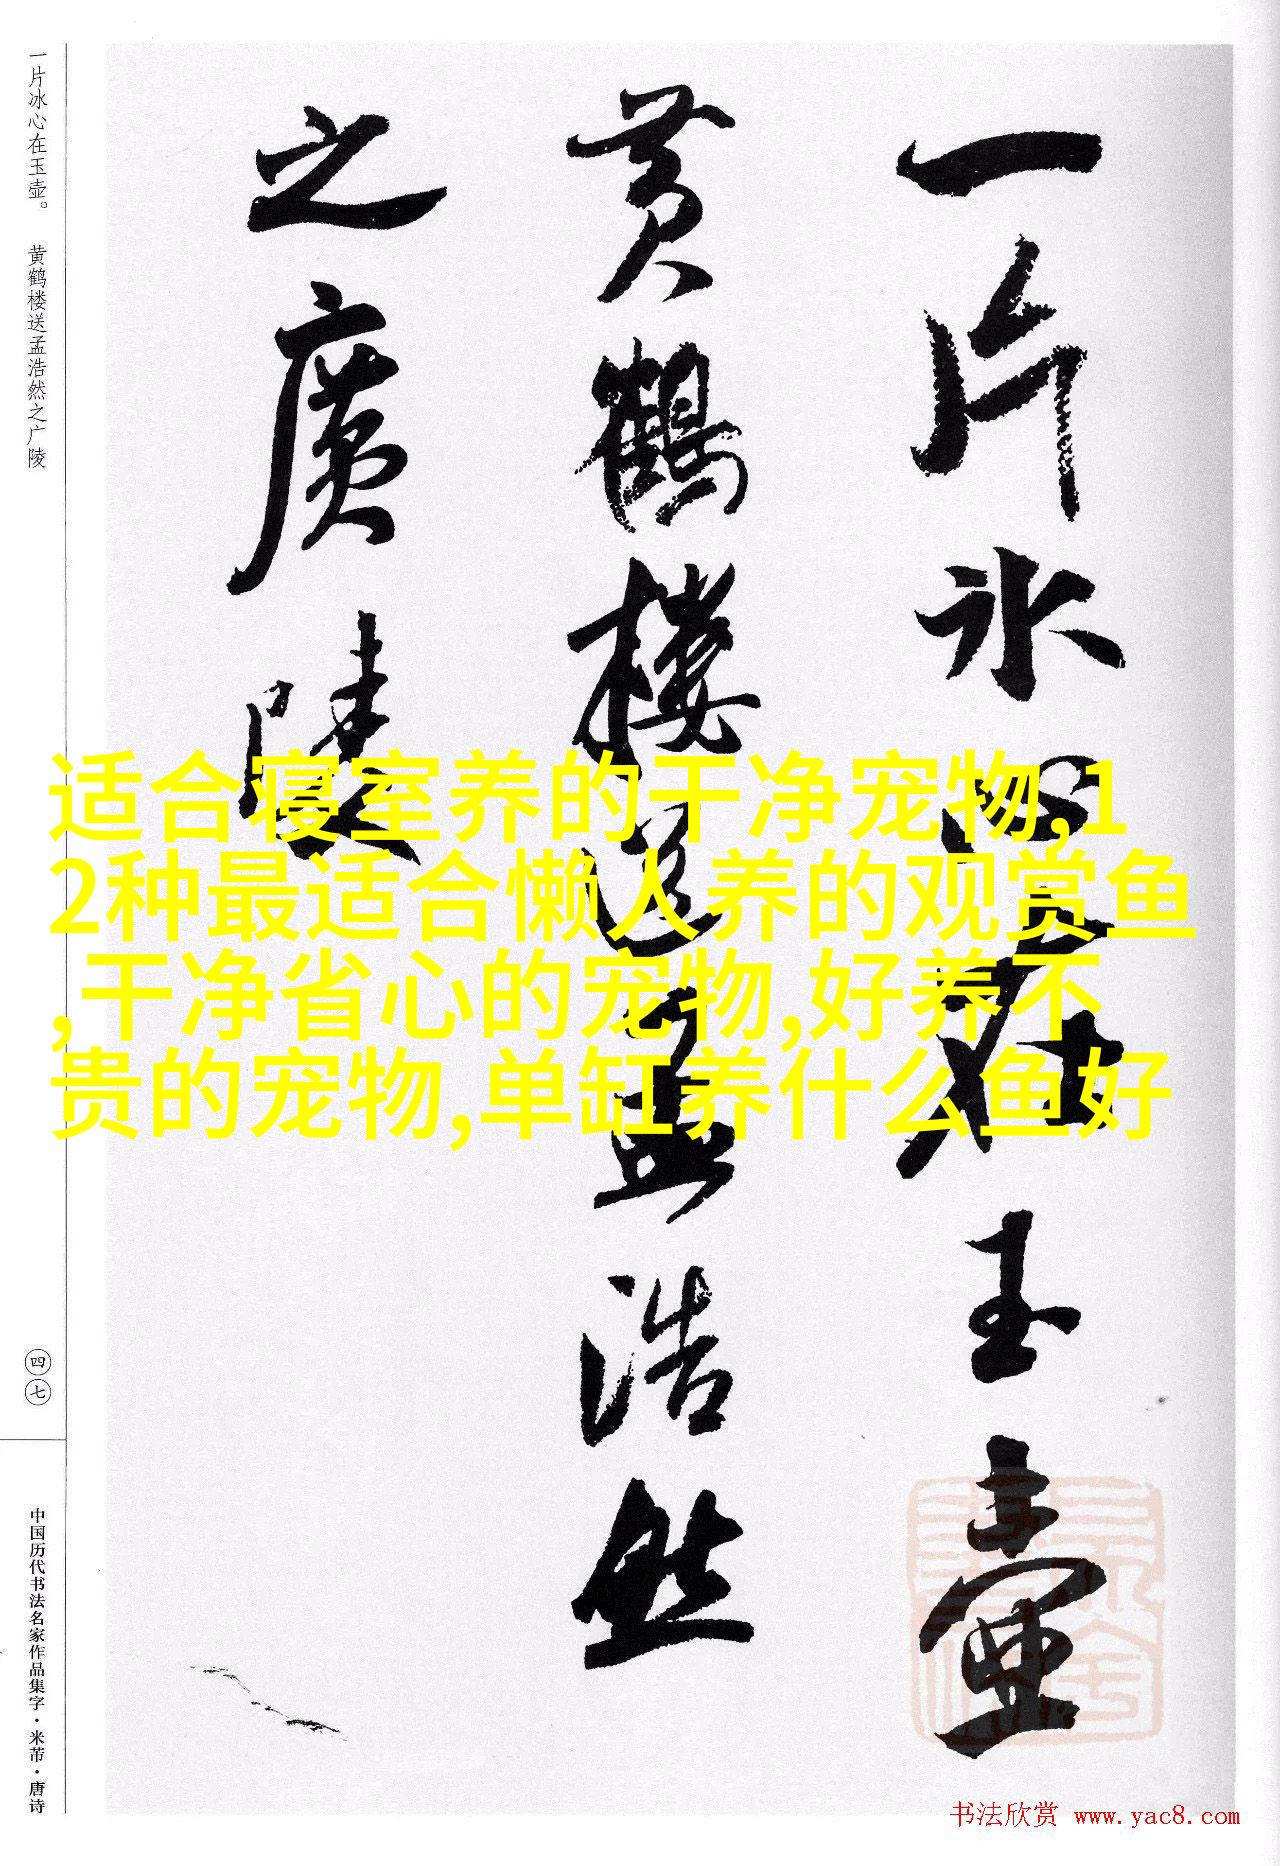 一片冰心在玉壶
黄鹤楼送孟浩然
之廣陵
适合寝室养的干净宠物,1
2种最适合懒人养的观赏鱼
,干净省心的宠物,好养不
贵的宠物,单缸养什么鱼好
一片冰心在玉壶。 黄鹤楼送孟浩然之广陵
四七
中国历代书法名家作品集字·米芾·唐诗
书法欣赏 www.yac8.com